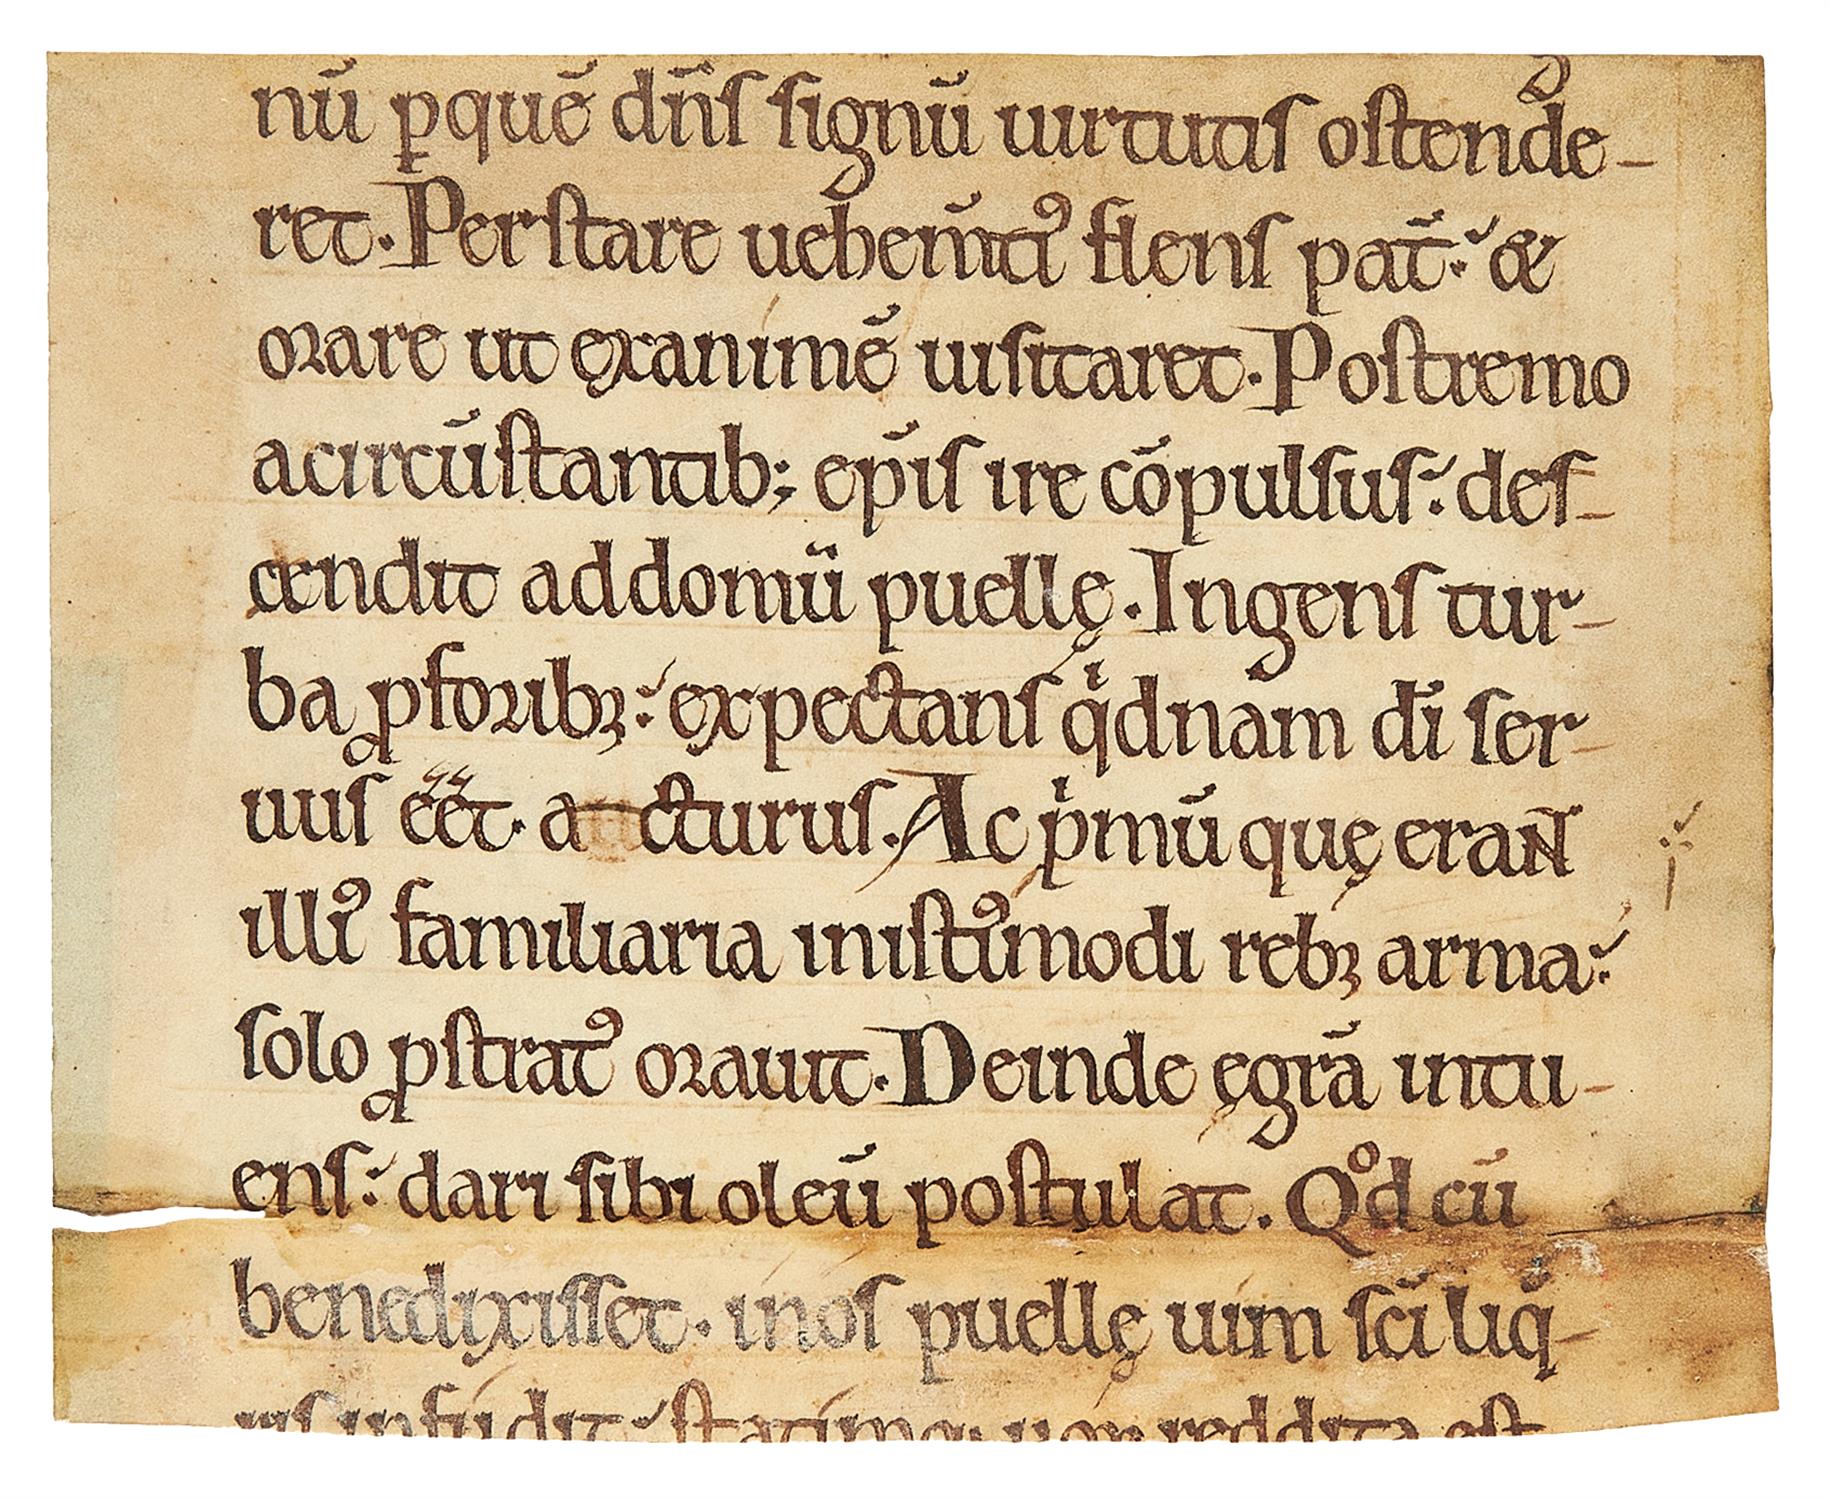 nū ꝑquē dn̄s signū uirtutis ostende-
ret. Perstare uehem̄tiꝰ flens pat̄. &
orare ut exanimē uisitaret. Postremo
acircūstantib; ep̄is ire cōpulsus. des-
cendit addomū puellę. Ingens tur-
ba ꝓforibꝫ. expectans qͥdnam dī ser-
uus eēt. acturus. Ac pͥmū quę eraN̄t
illiꝰ familiaria inistiꝰmodi rebꝫ arma.
solo ꝓstratꝰ orauit. Deinde ęgrā intu-
ens. dari sibi oleū postulat. Qᵒd cū
benedixisset. inos puellę uim sc̄i liq̄-
ris infudit. statimq; uox reddita est